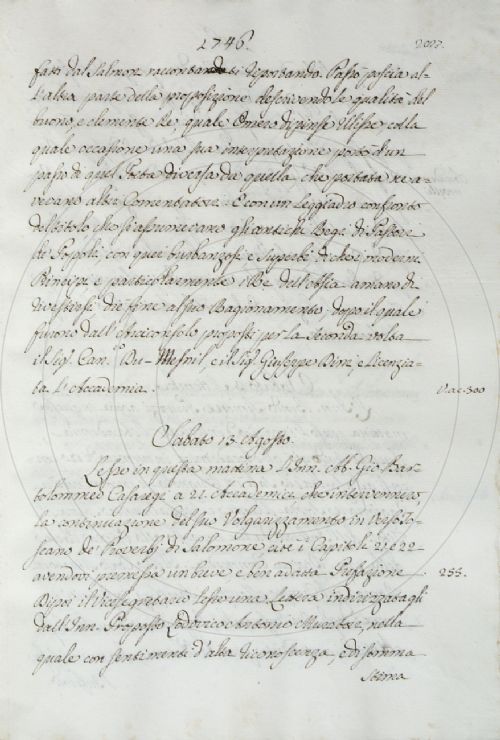 1746.
2007.
fatti dal Salmon raccontandosi riportando. Passò poscia al-
l'altra parte della proposizione descrivendo le qualità del
buono, e clemente Re, quale Omero dipinse Ulisse colla
quale occasione una sua interpretazione portò d'un
passo di quel Poeta diversa da quella che portata ne a-
vevano altri Comentatori. E con un leggiadro confronto
del titolo che si assumevano gli antichi Regi di Pastori
de Popoli, con quei burbanzosi e superbi di che i moderni
Principi e particolarmente i Re dell'Asia amano di
rivestirsi die fine al suo Ragionamento, dopo il quale
furono dall'Arciconsolo proposti per la seconda volta
il Sig. Can. Du-Mesnil, e il Sig. Giuseppe Bini, e licenzia-
ta l'Accademia.
V. a c. 300
Sabato 13 Agosto.
Lesse in questa mattina l'Inn. Ab. Gio Bar-
tolommeo Casaregi a 21 Accademici che intervennero
la continuazione del suo Volgarizzamento in Verso To-
scano de' Proverbj di Salomone cioè i Capitoli 21 e 22
avendovi premessa un breve e ben adatta Prefazione
255.
Dipoi il Vicesegretario lesse una Lettera indirizzatagli
dall'Inn. Proposto Lodovico Antonio Muratori, nella
quale con sentimenti d'alta riconoscenza, e di somma
stima